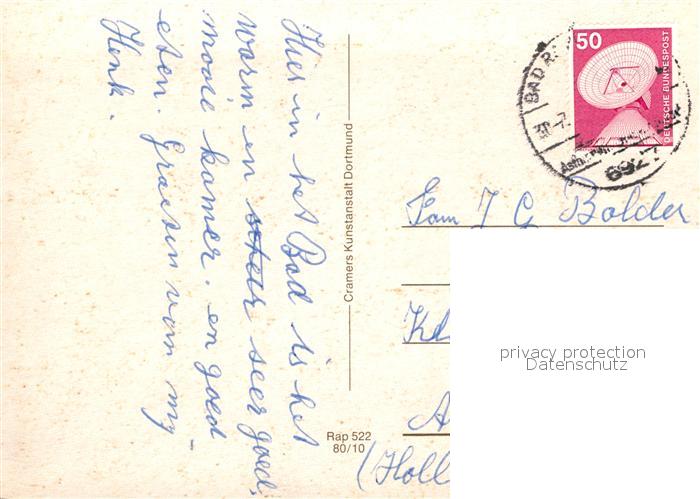 Hier in het Bad is het
warm en seer goed.
mooie kamer. en goed
eten. Groeten van my-
Henk.
Cramers Kunstanstalt Dortmund
Rap 522
80/10
50
DEUTSCHE BUNDESPOST
BAD R
6927
Fam J G Bolder
Kl
A
(Holl
privacy protection
Datenschutz